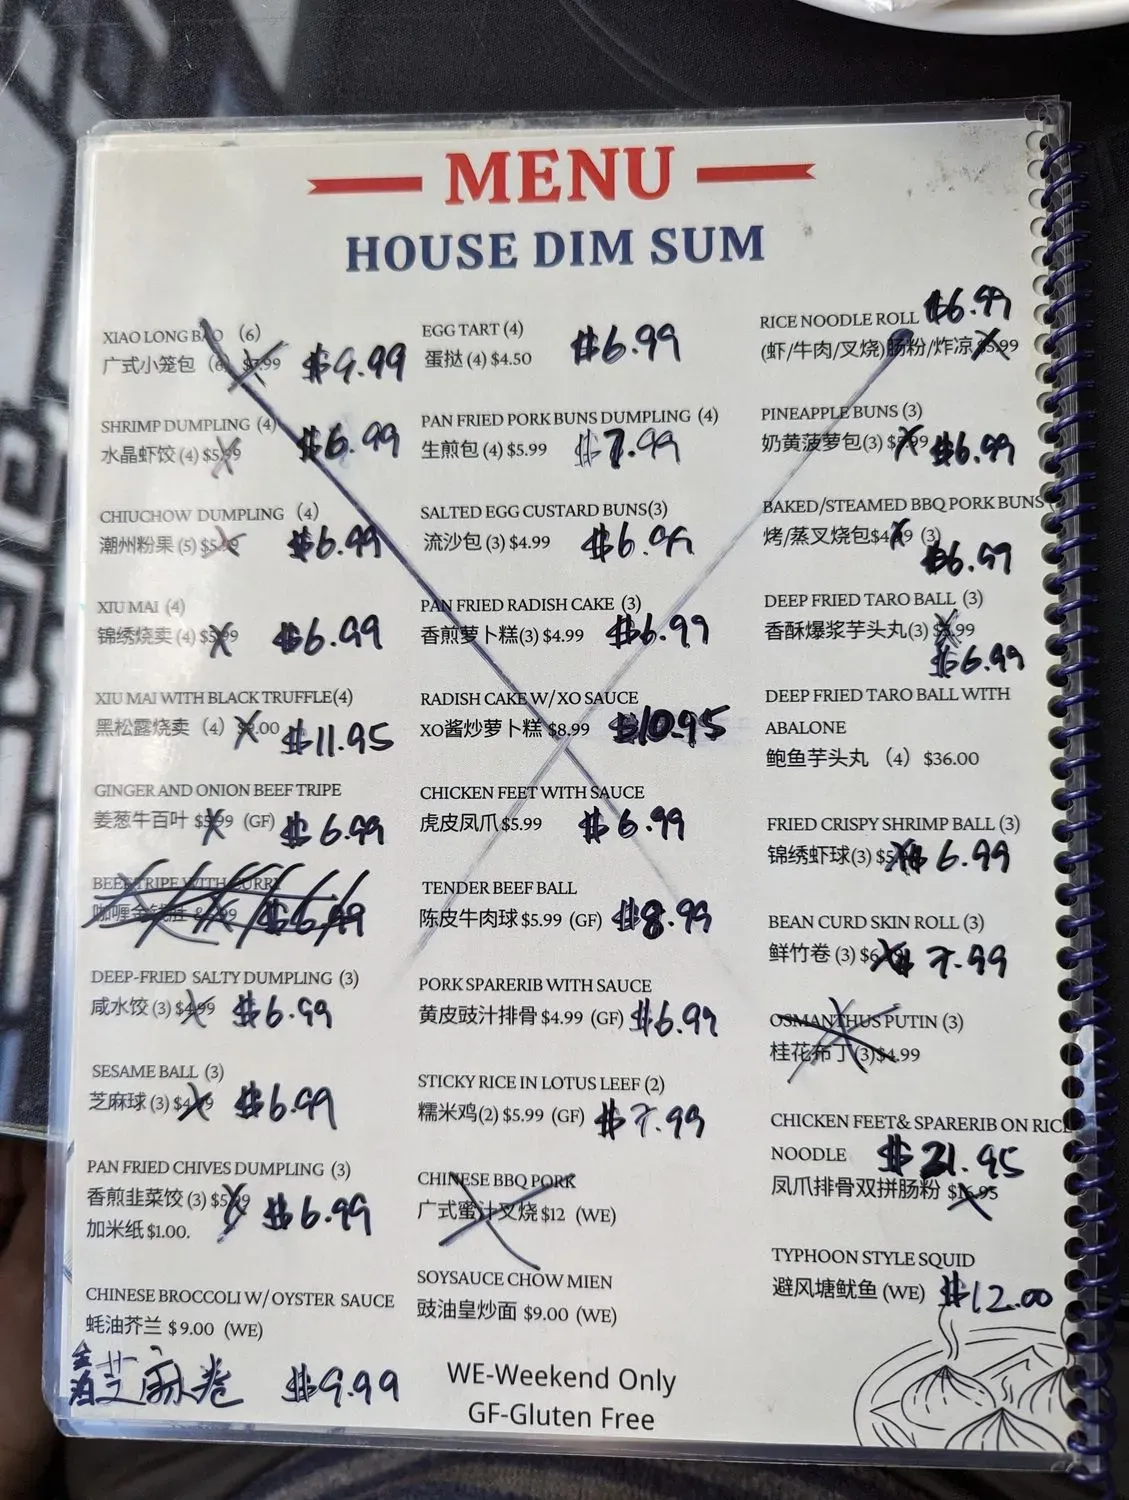 MENU
HOUSE DIM SUM
XIAO LONG BAO (6)
广式小笼包 (6) $7.99 $9.99
SHRIMP DUMPLING (4)
水晶虾饺 (4) $5.99 $6.99
CHIUCHOW DUMPLING (4)
潮州粉果 (5) $5.99 $6.99
XIU MAI (4)
锦绣烧卖 (4) $5.99 $6.99
XIU MAI WITH BLACK TRUFFLE(4)
黑松露烧卖 (4) .00 $11.95
GINGER AND ONION BEEF TRIPE
姜葱牛百叶 $5.99 (GF) $6.99
BEEF TRIPE WITH CURRY
咖喱金 .99 $6.99
DEEP-FRIED SALTY DUMPLING (3)
咸水饺 (3) $4.99 $6.99
SESAME BALL (3)
芝麻球 (3) $4.99 $6.99
PAN FRIED CHIVES DUMPLING (3)
香煎韭菜饺 (3) $5.99 $6.99
加米纸 $1.00.
CHINESE BROCCOLI W/ OYSTER SAUCE
蚝油芥兰 $9.00 (WE)
芝麻卷 $9.99
EGG TART (4)
蛋挞 (4) $4.50 $6.99
PAN FRIED PORK BUNS DUMPLING (4)
生煎包 (4) $5.99 $7.99
SALTED EGG CUSTARD BUNS(3)
流沙包 (3) $4.99 $6.99
PAN FRIED RADISH CAKE (3)
香煎萝卜糕(3) $4.99 $6.99
RADISH CAKE W/XO SAUCE
XO酱炒萝卜糕 $8.99 $10.95
CHICKEN FEET WITH SAUCE
虎皮凤爪 $5.99 $6.99
TENDER BEEF BALL
陈皮牛肉球 $5.99 (GF) $8.99
PORK SPARERIB WITH SAUCE
黄皮豉汁排骨 $4.99 (GF) $6.99
STICKY RICE IN LOTUS LEEF (2)
糯米鸡(2) $5.99 (GF) $7.99
CHINESE BBQ PORK
广式蜜汁叉烧 $12 (WE)
SOYSAUCE CHOW MIEN
豉油皇炒面 $9.00 (WE)
WE-Weekend Only
GF-Gluten Free
RICE NOODLE ROLL $6.99
(虾/牛肉/叉烧)肠粉/炸凉 $5.99
PINEAPPLE BUNS (3)
奶黄菠萝包(3) .99 $6.99
BAKED/STEAMED BBQ PORK BUNS
烤/蒸叉烧包$4.99 (3)
$6.99
DEEP FRIED TARO BALL (3)
香酥爆浆芋头丸(3) .99
$6.99
DEEP FRIED TARO BALL WITH
ABALONE
鲍鱼芋头丸 (4) $36.00
FRIED CRISPY SHRIMP BALL (3)
锦绣虾球(3) $5 $6.99
BEAN CURD SKIN ROLL (3)
鲜竹卷 (3) $6 $7.99
OSMANTHUS PUTIN (3)
桂花布丁(3)$4.99
CHICKEN FEET& SPARERIB ON RICE
NOODLE $21.95
凤爪排骨双拼肠粉 $16.95
TYPHOON STYLE SQUID
避风塘鱿鱼 (WE) $12.00